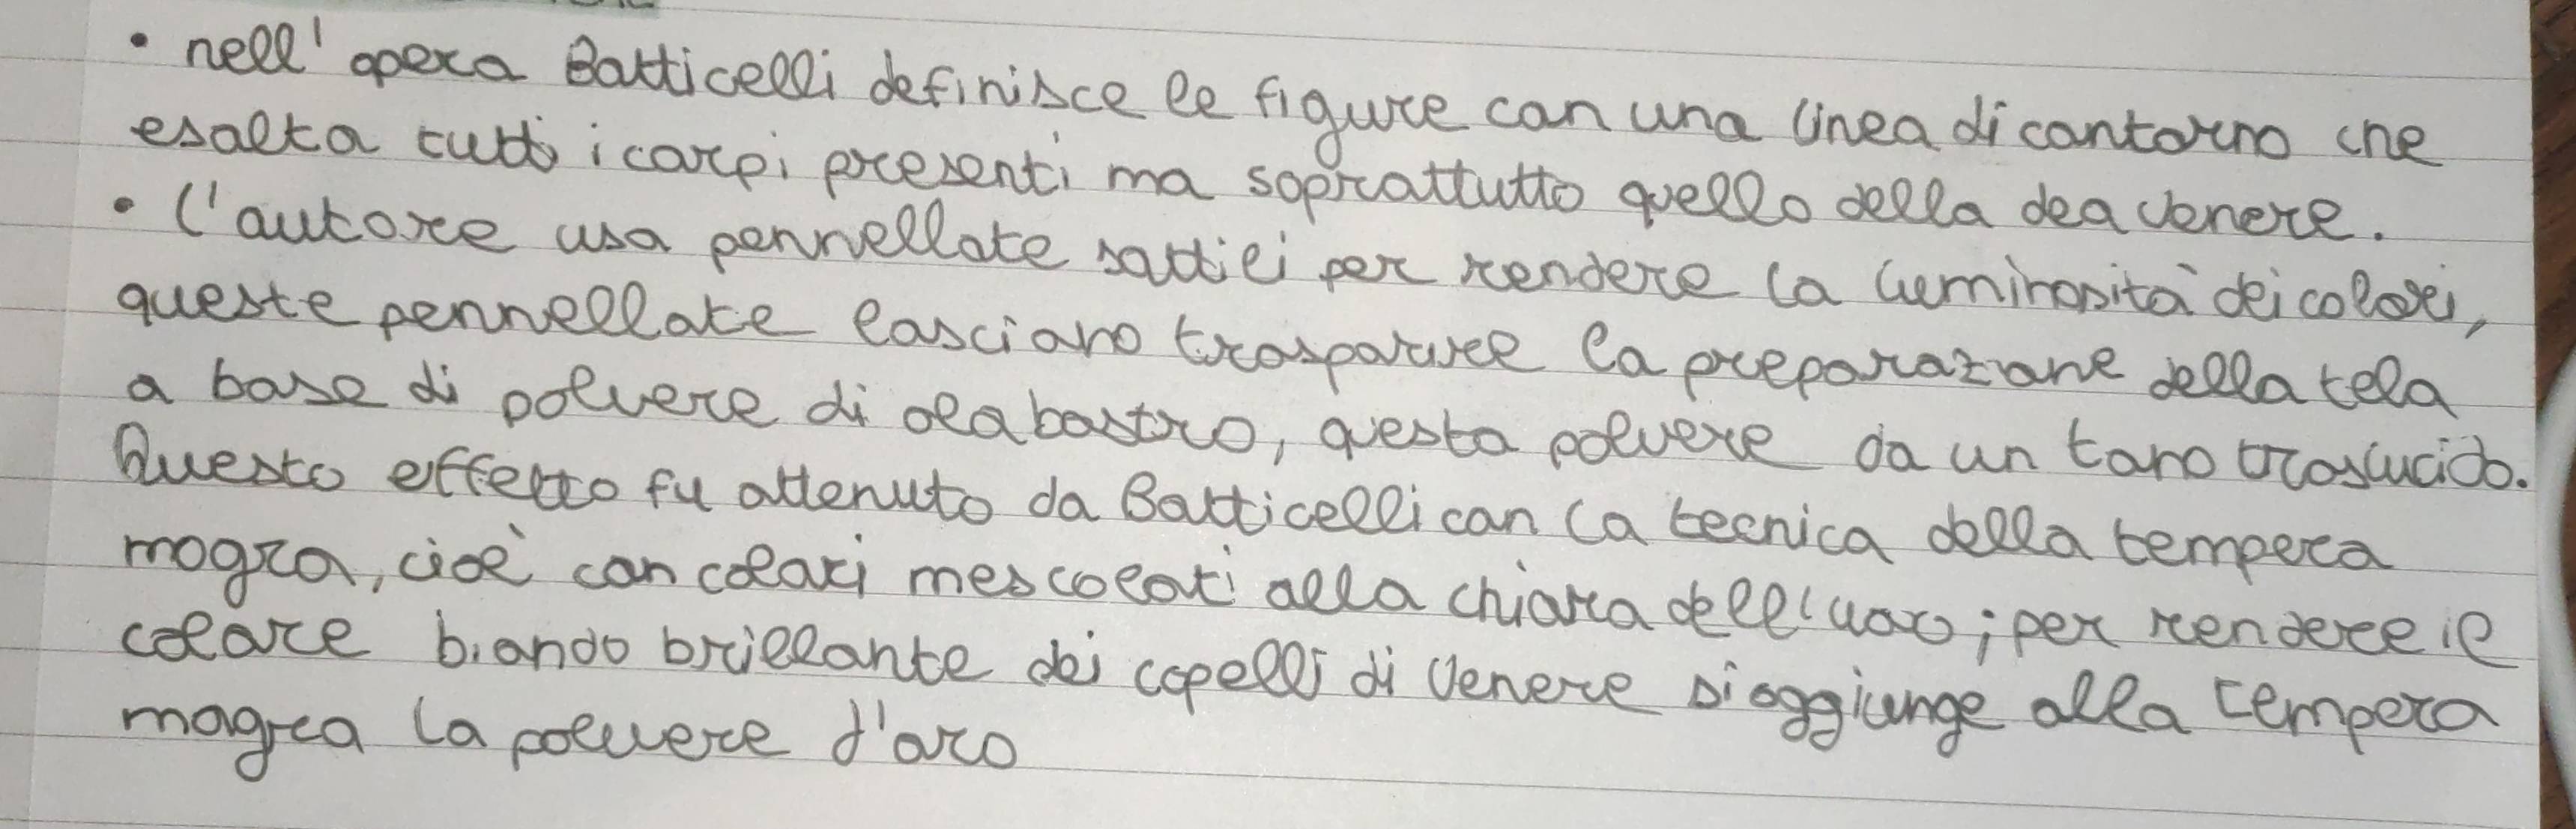 • nell'opera Botticelli definisce le figure con una linea di contorno che
esalta tutti i corpi presenti ma soprattutto quello della dea Venere.
• l'autore usa pennellate sottili per rendere la luminosità dei colori,
queste pennellate lasciano trasparire la preparazione della tela
a base di polvere di alabastro, questa polvere da un tono traslucido.
Questo effetto fu ottenuto da Botticelli con la tecnica della tempera
magra, cioè con colori mescolati alla chiara dell'uovo; per rendere il
colore biondo brillante dei capelli di Venere si aggiunge alla tempera
magra la polvere d'oro